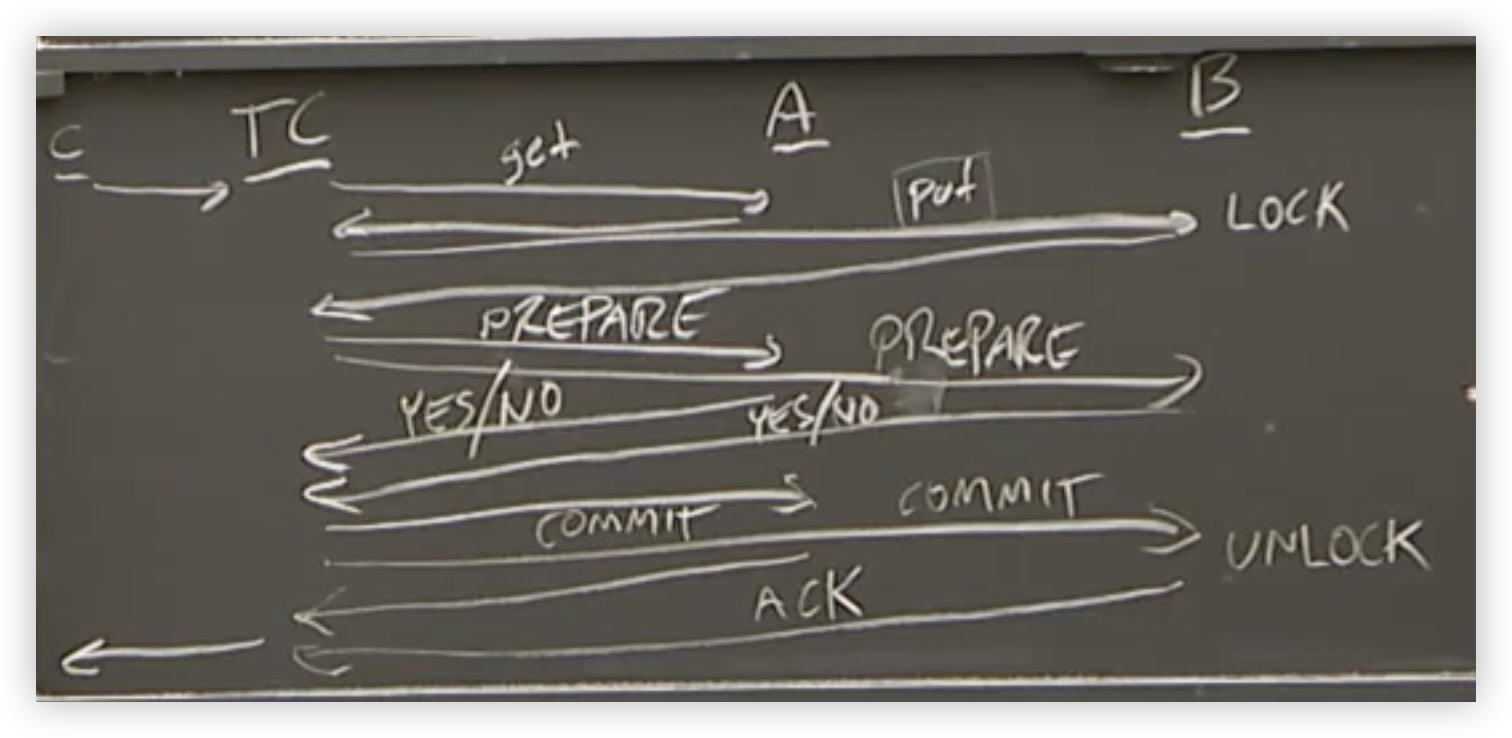 C TC A B
get
put
LOCK
PREPARE
PREPARE
YES/NO
YES/NO
COMMIT
COMMIT
UNLOCK
ACK